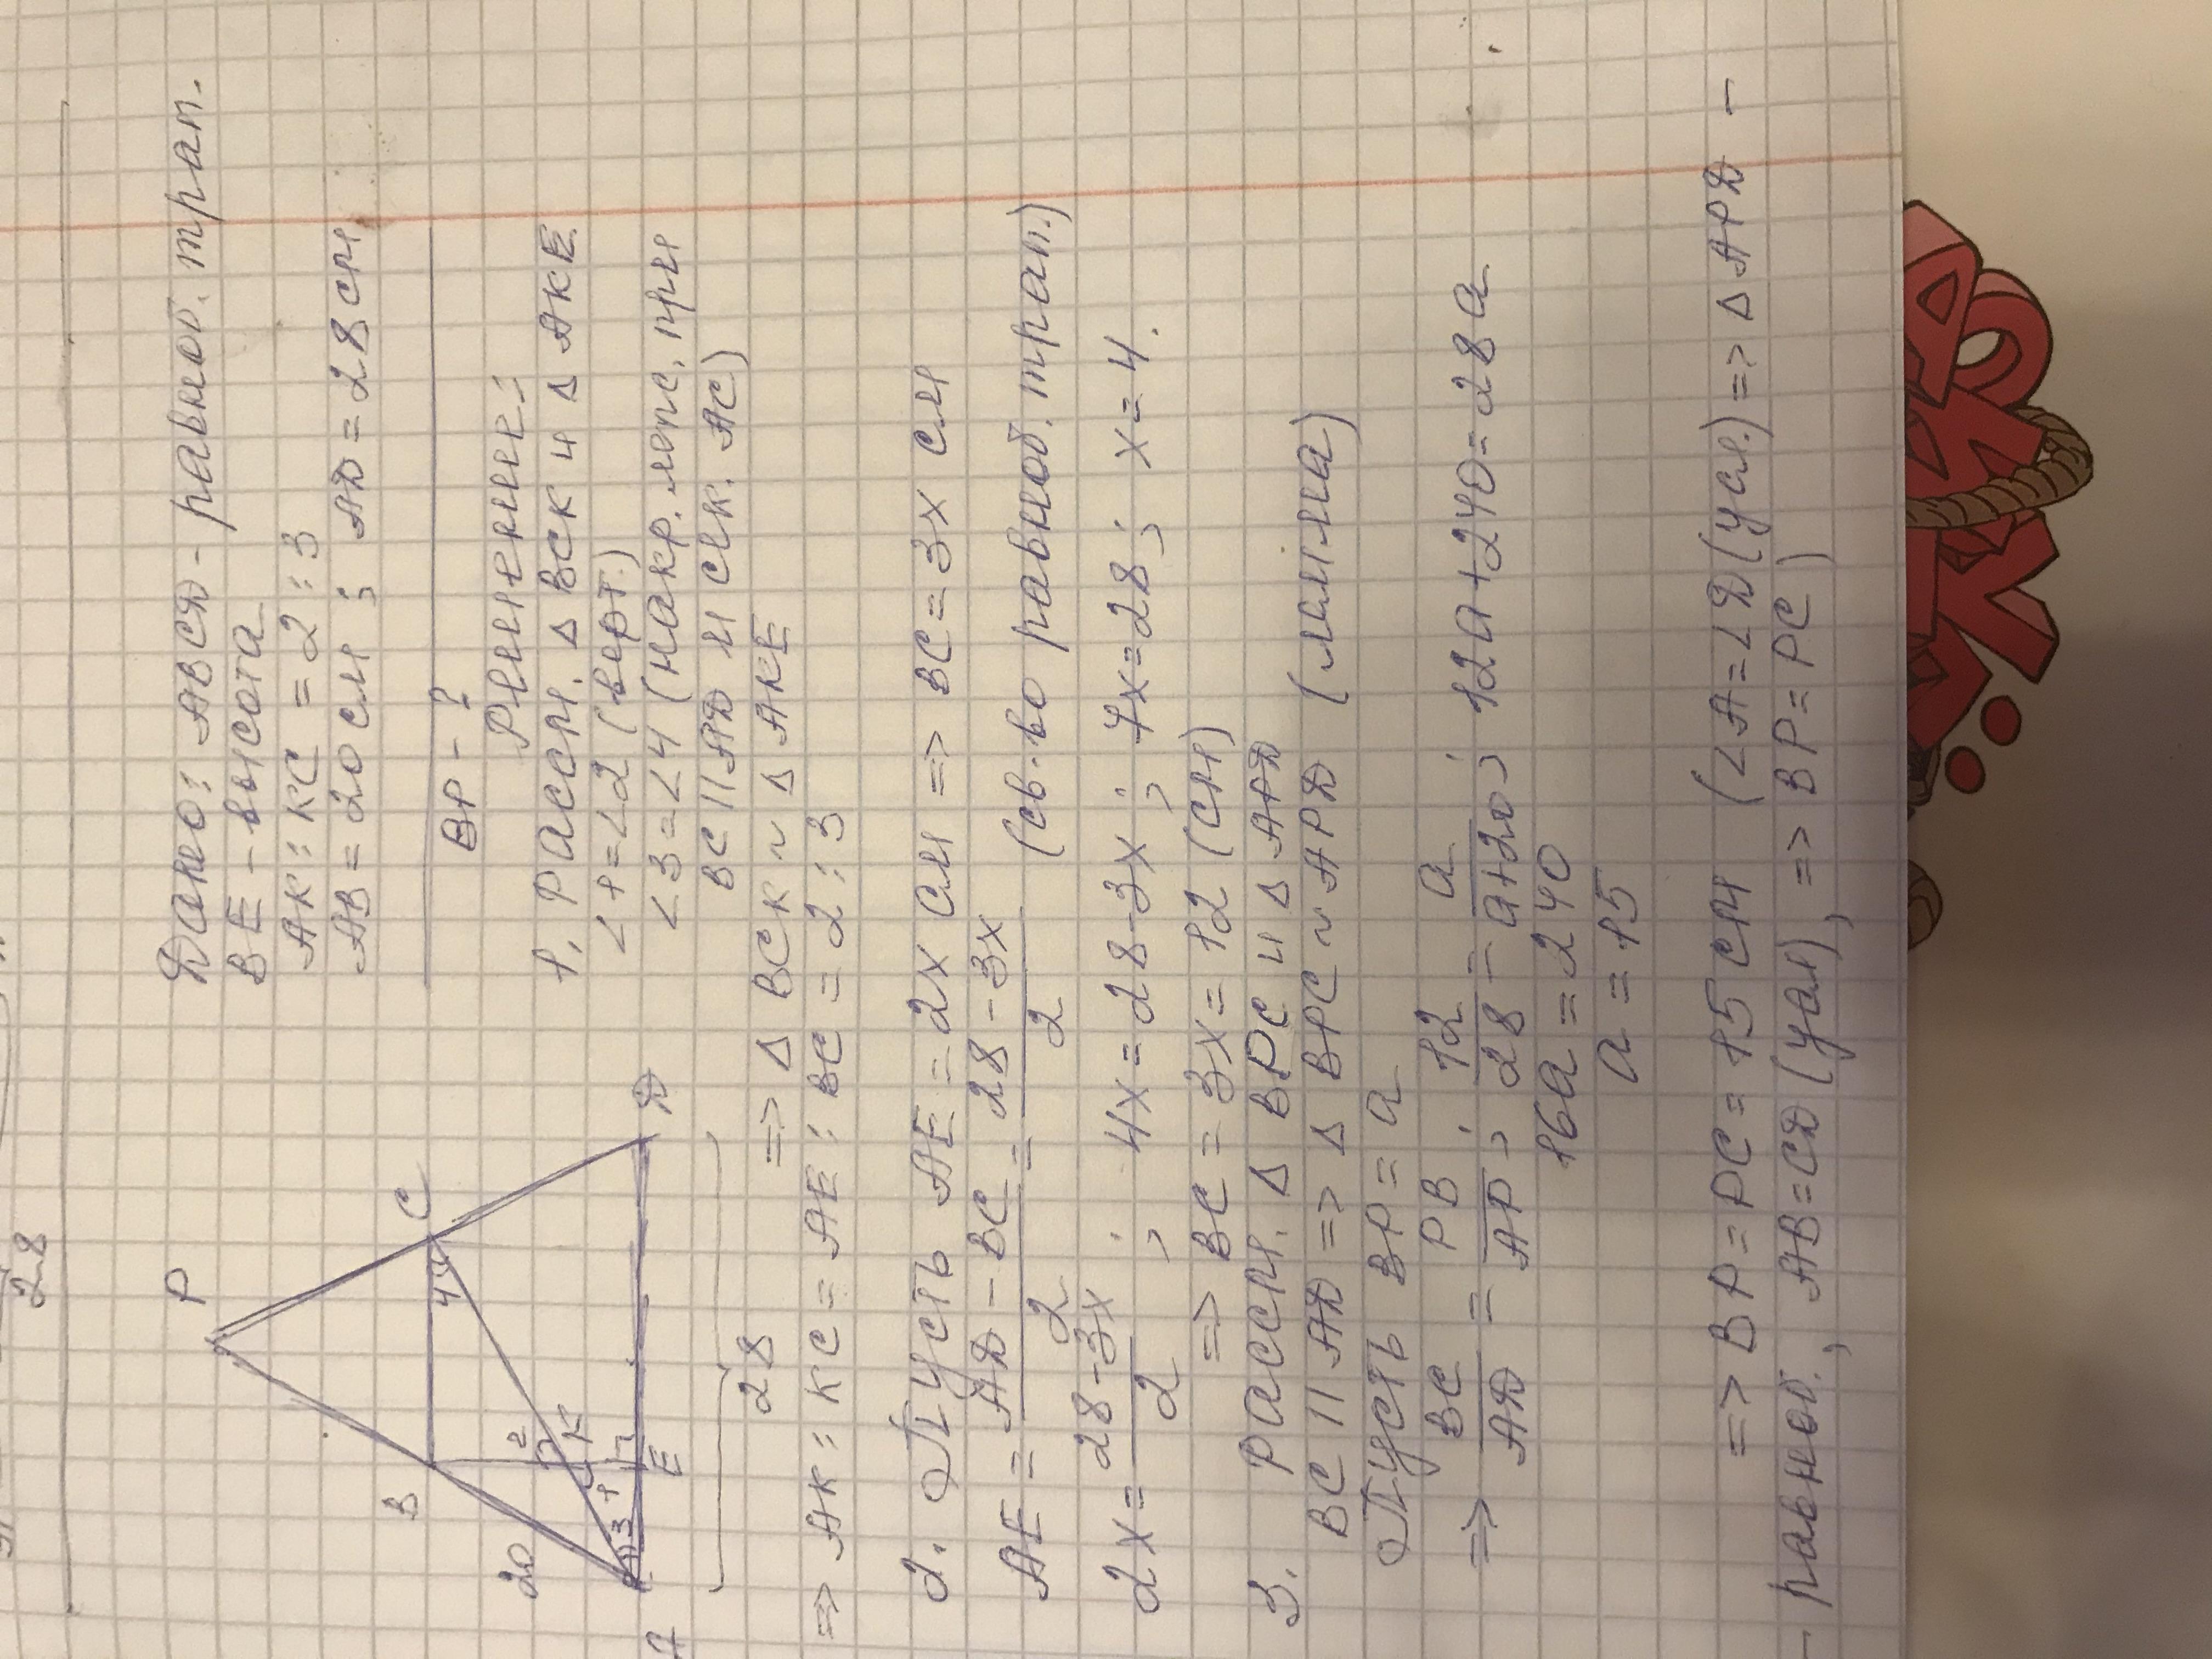 28
Дано: ABCD - равноб. трап.
BE - высота
AK : KC = 2 : 3
AB = 20 см ; AD = 28 см
BP - ?
P
B
C
20
2
4
1
3
K
E
A
D
28
Решение:
1. Рассм. Δ BCK и Δ AKE
∠1 = ∠2 (верт.)
∠3 = ∠4 (накр. леж. при
BC || AD и сек. AC)
=> Δ BCK ~ Δ AKE
=> AK : KC = AE : BC = 2 : 3
2. Пусть AE = 2x см => BC = 3x см
AE = (AD - BC)/2 = (28 - 3x)/2 (св-во равноб. трап.)
2x = (28 - 3x)/2 ; 4x = 28 - 3x ; 7x = 28 ; x = 4.
=> BC = 3x = 12 (см)
3. Рассм. Δ BPC и Δ APD
BC || AD => Δ BPC ~ APD (лемма)
Пусть BP = a
=> BC/AD = PB/AP ; 12/28 = a/(a+20) ; 12a + 240 = 28a
16a = 240
a = 15
=> BP = PC = 15 см (∠A = ∠D (усл.) => Δ APD -
- равноб. , AB = CD (усл), => BP = PC)